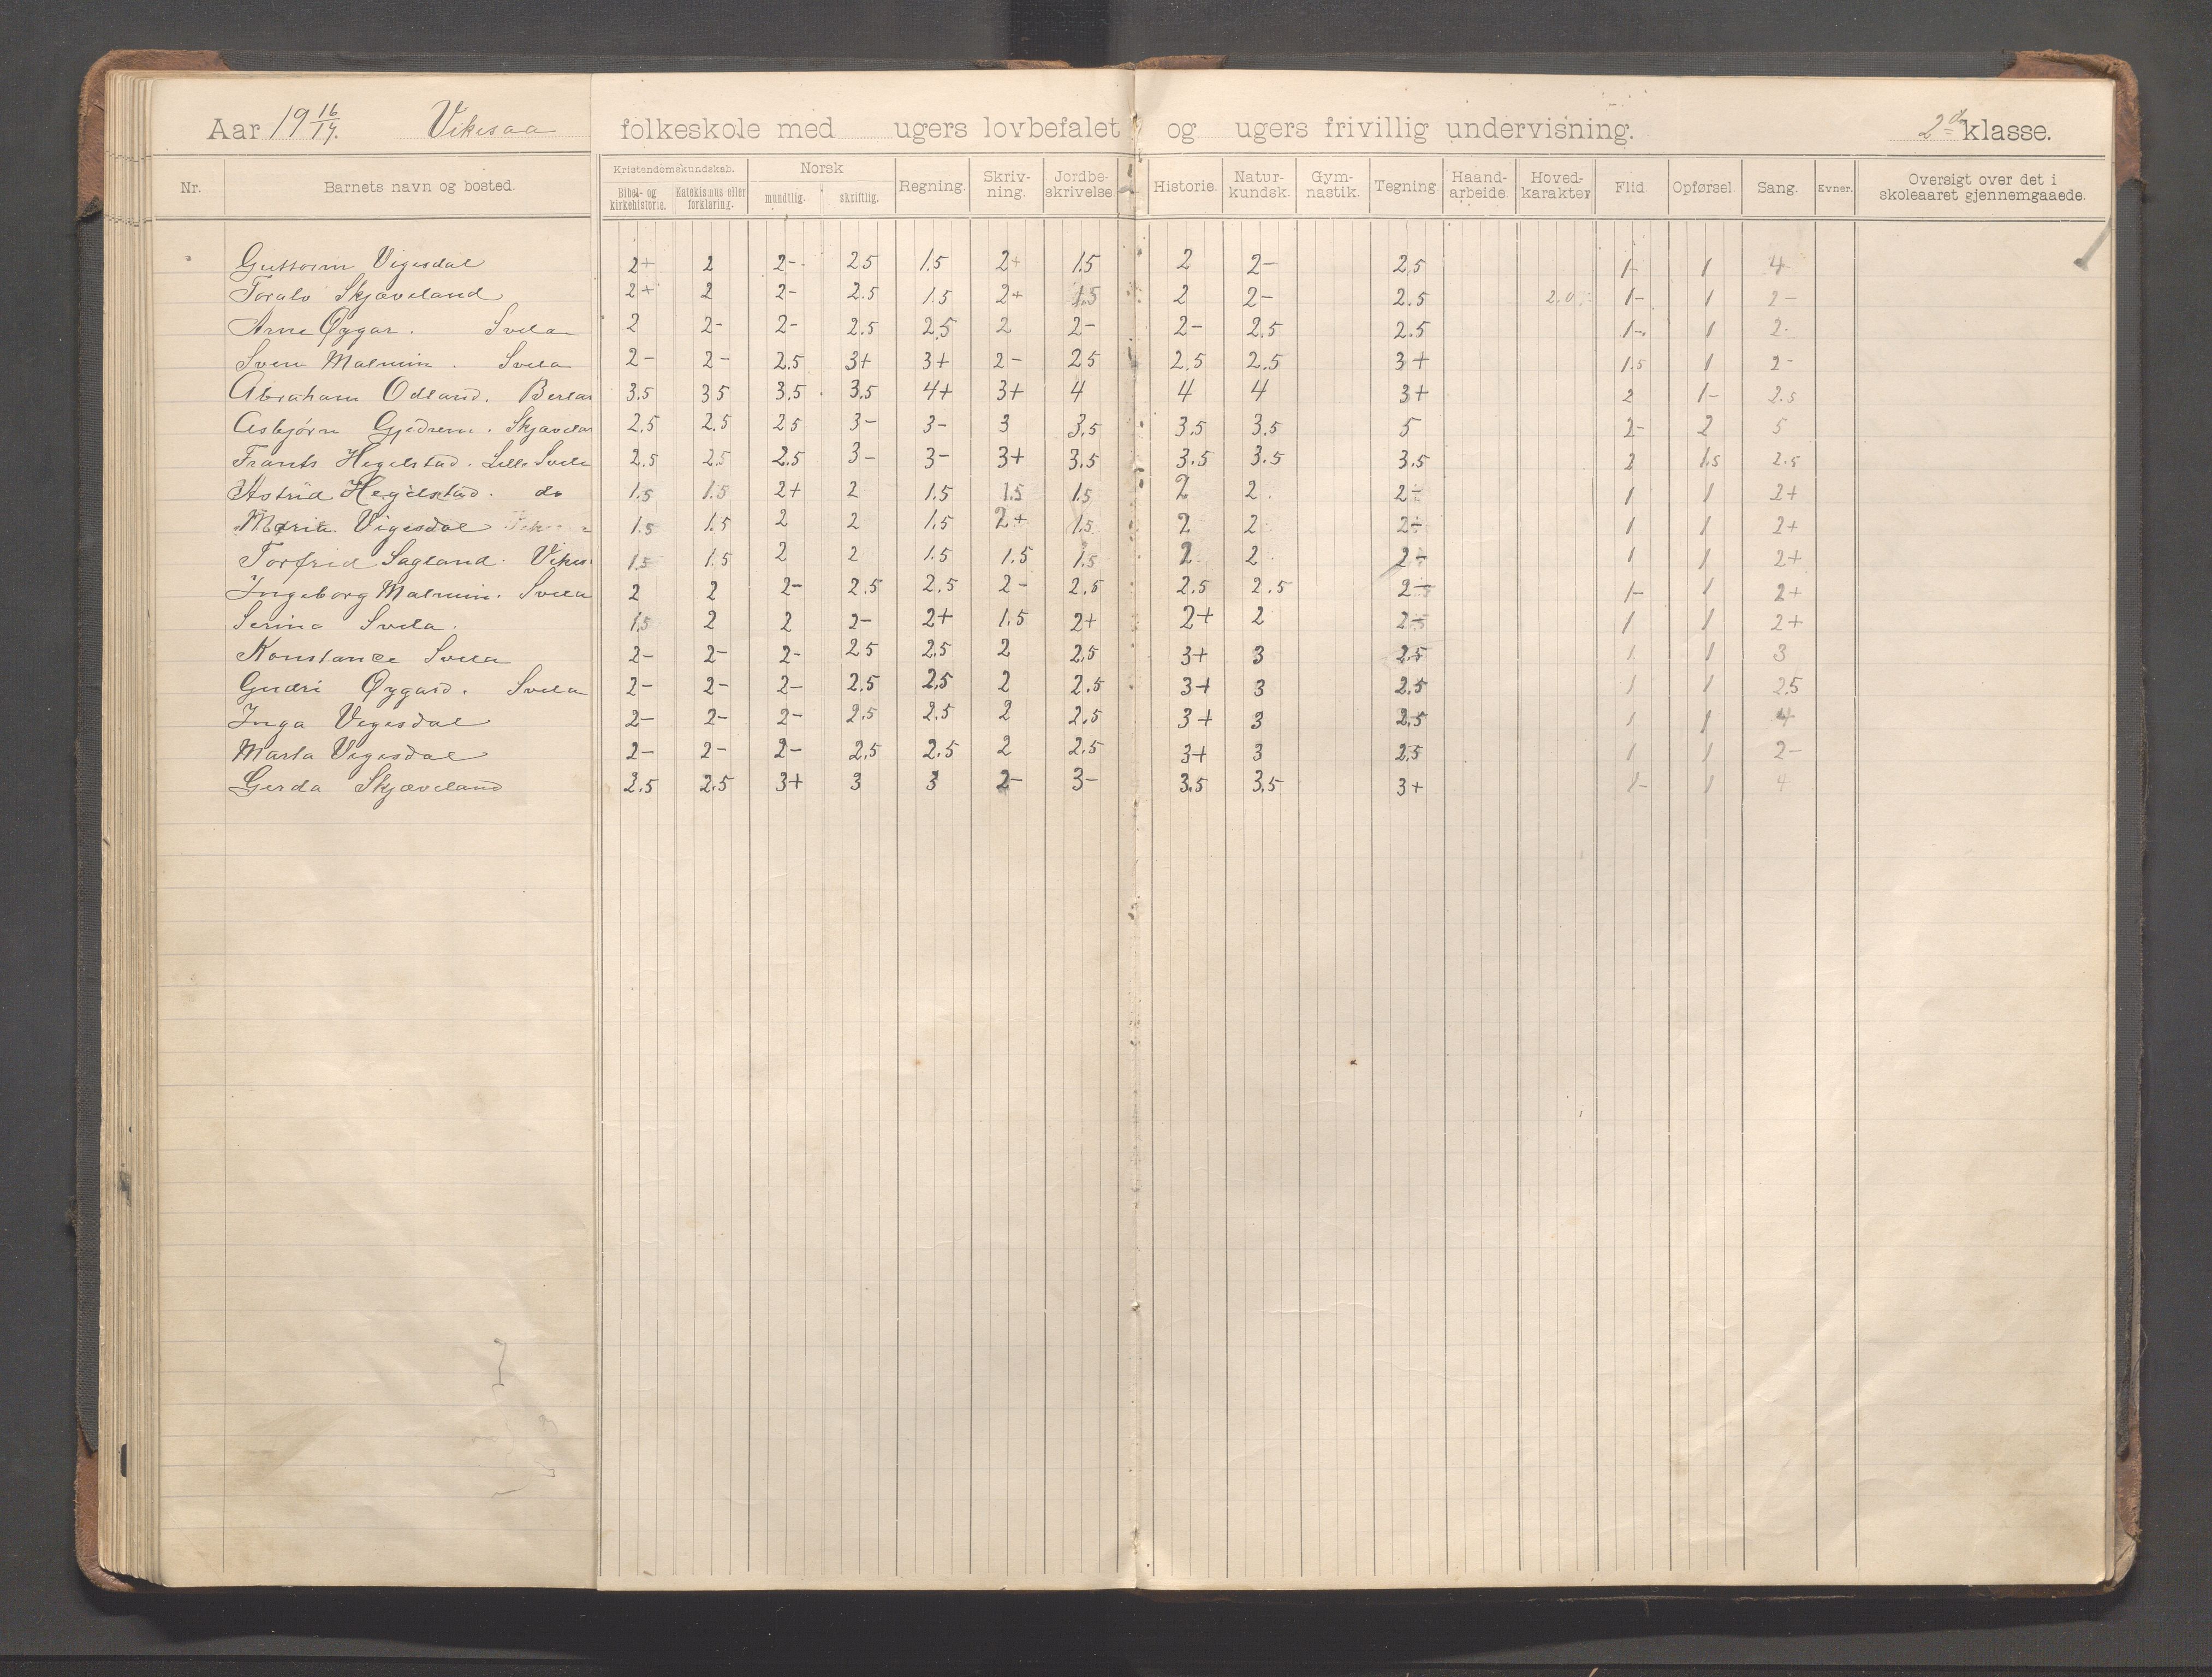 Aar 19 16/17. Vikesaa folkeskole med ugers lovbefalet og ugers frivillig undervisning. 2d klasse.
Nr. Barnets navn og bosted. Kristendomskundskab. Bibel- og kirkehistorie. Katekismus eller forklaring. Norsk mundtlig. skriftlig. Regning. Skriv-ning. Jordbe-skrivelse Historie. Natur-kundsk. Gym-nastik. Tegning. Haand-arbeide. Hoved-karakter Flid. Opførsel. Sang. Evner. Oversigt over det i skoleaaret gjennemgaaede.
Guttorm Vigesdal 2+ 2 2- 2.5 1.5 2+ 1.5 2 2- 2.5 1- 1 4
Toralv Skjæveland 2+ 2 2- 2.5 1.5 2+ 1.5 2 2- 2.5 2.0 1- 1 2-
Arne Øygar. Svela 2 2- 2- 2.5 2.5 2 2- 2- 2.5 2.5 1- 1 2-
Sven Malmin. Svela 2- 2- 2.5 3+ 3+ 2- 2.5 2.5 2.5 3+ 1.5 1 2-
Abraham Odland. 3.5 3.5 3.5 3.5 4+ 3+ 4 4 4 3+ 2 1- 2.5
Asbjørn Gjedrem. Skjævelan 2.5 2.5 2.5 3- 3- 3 3.5 3.5 3.5 5 2- 2 5
Frants Hegelstad. Lille Svela 2.5 2.5 2.5 3- 3- 3+ 3.5 3.5 3.5 3.5 2 1.5 2.5
Astrid Hegelstad. do 1.5 1.5 2+ 2 1.5 1.5 1.5 2 2 2- 1 1 2+
Maria Vigesdal 1.5 1.5 2 2 1.5 2+ 1.5 2 2 2- 1 1 2+
Torfrid Sagland. Vikes 1.5 1.5 2 2 1.5 1.5 1.5 2 2 2- 1 1 2+
Ingeborg Malmin. Svela 2 2 2- 2.5 2.5 2- 2.5 2.5 2.5 2- 1- 1 2+
Serina Svela. 1.5 2 2 2- 2+ 1.5 2+ 2+ 2 1 1 2+
Konstance Svela 2- 2- 2- 2.5 2.5 2 2.5 3+ 3 2.5 1 1 3
Gudri Øygard. Svela 2- 2- 2- 2.5 2.5 2 2.5 3+ 3 2.5 1 1 2.5
Inga Vigesdal 2- 2- 2- 2.5 2.5 2 2.5 3+ 3 2.5 1 1 4
Marta Vigesdal 2- 2- 2- 2.5 2.5 2 2.5 3+ 3 2.5 1 1 2-
Gerda Skjæveland 2.5 2.5 3+ 3 3 2- 3- 3.5 3.5 3+ 1- 1 4